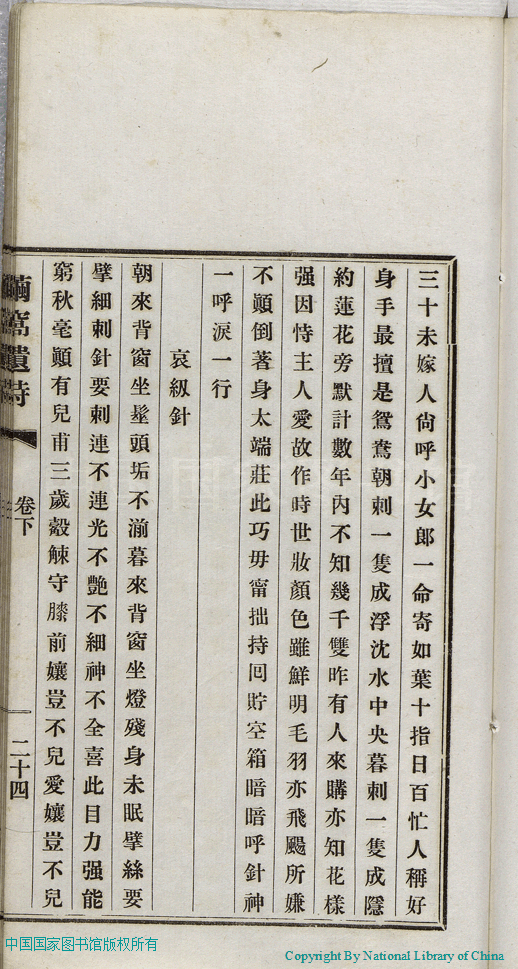 三十未嫁人尙呼小女郎一命寄如葉十指日百忙人稱好
身手最擅是鴛鴦朝刺一隻成浮沈水中央暮刺一隻成隱
約蓮花旁默計數年內不知幾千雙昨有人來購亦知花樣
强因恃主人愛故作時世妝顏色雖鮮明毛羽亦飛颺所嫌
不顚倒著身太端莊此巧毋甯拙持囘貯空箱暗暗呼針神
一呼淚一行
哀紉針
朝來背窗坐髼頭垢不湔暮來背窗坐燈殘身未眠擘絲要
擘細刺針要刺連不連光不艷不細神不全喜此目力强能
窮秋毫顚有兒甫三歲觳觫守膝前孃豈不兒愛孃豈不兒
繭窩遺詩
卷下
二十四
中国国家图书馆版权所有
Copyright By National Library of China